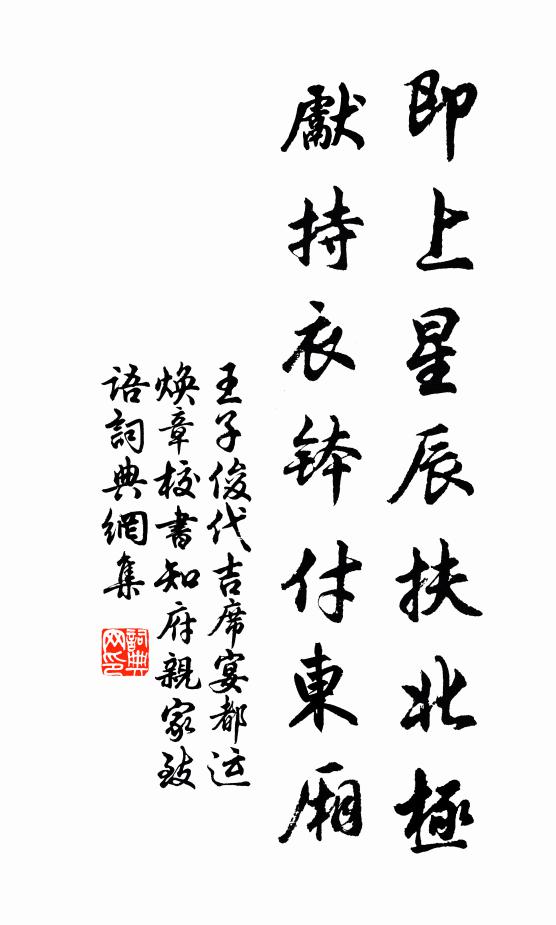 即上星辰扶北極
獻持衣鉢付東厢
王子俊代吉席宴都运
焕章校書知府親家致
语詞典網集
詞典
网印